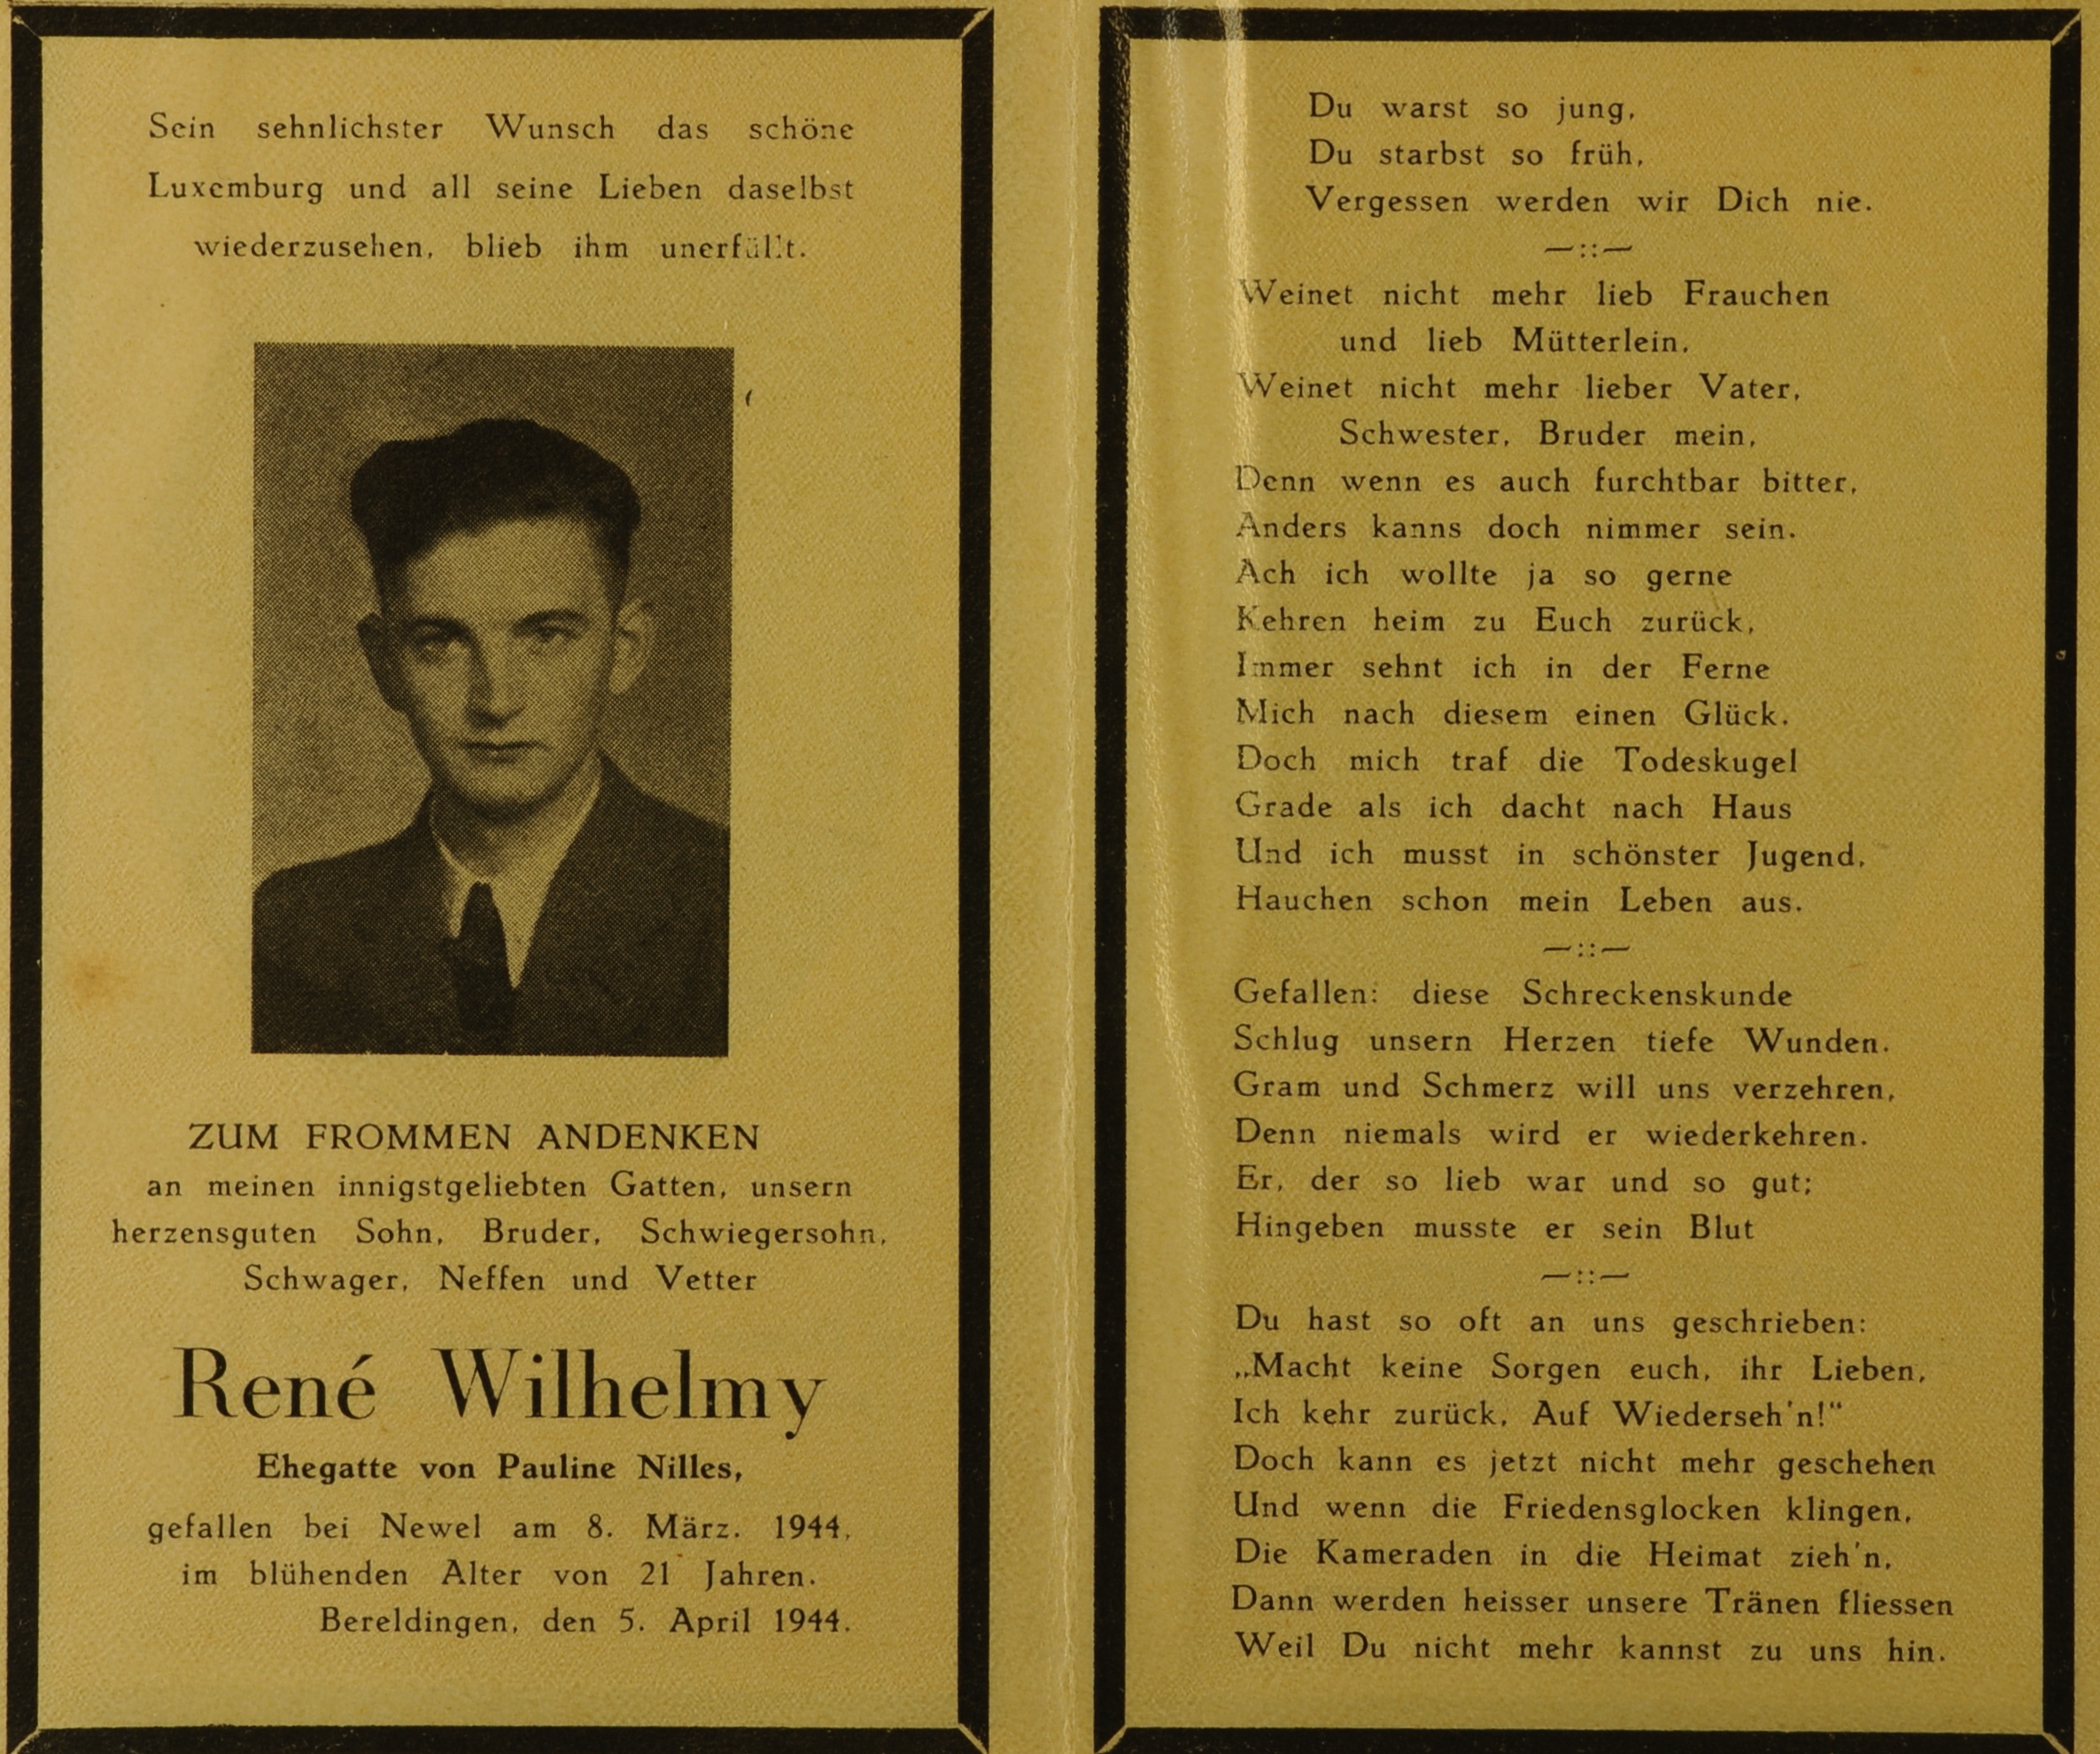 Sein sehnlichster Wunsch das schöne
Luxemburg und all seine Lieben daselbst
wiederzusehen, blieb ihm unerfüllt.
ZUM FROMMEN ANDENKEN
an meinen innigstgeliebten Gatten, unsern
herzensguten Sohn, Bruder, Schwiegersohn,
Schwager, Neffen und Vetter
René Wilhelmy
Ehegatte von Pauline Nilles,
gefallen bei Newel am 8. März. 1944,
im blühenden Alter von 21 Jahren.
Bereldingen, den 5. April 1944.
Du warst so jung,
Du starbst so früh,
Vergessen werden wir Dich nie.
—::—
Weinet nicht mehr lieb Frauchen
und lieb Mütterlein,
Weinet nicht mehr lieber Vater,
Schwester, Bruder mein,
Denn wenn es auch furchtbar bitter,
Anders kanns doch nimmer sein.
Ach ich wollte ja so gerne
Kehren heim zu Euch zurück,
Immer sehnt ich in der Ferne
Mich nach diesem einen Glück.
Doch mich traf die Todeskugel
Grade als ich dacht nach Haus
Und ich musst in schönster Jugend,
Hauchen schon mein Leben aus.
—::—
Gefallen: diese Schreckenskunde
Schlug unsern Herzen tiefe Wunden.
Gram und Schmerz will uns verzehren,
Denn niemals wird er wiederkehren.
Er, der so lieb war und so gut;
Hingeben musste er sein Blut
—::—
Du hast so oft an uns geschrieben:
„Macht keine Sorgen euch, ihr Lieben,
Ich kehr zurück, Auf Wiederseh'n!“
Doch kann es jetzt nicht mehr geschehen
Und wenn die Friedensglocken klingen,
Die Kameraden in die Heimat zieh'n,
Dann werden heisser unsere Tränen fliessen
Weil Du nicht mehr kannst zu uns hin.